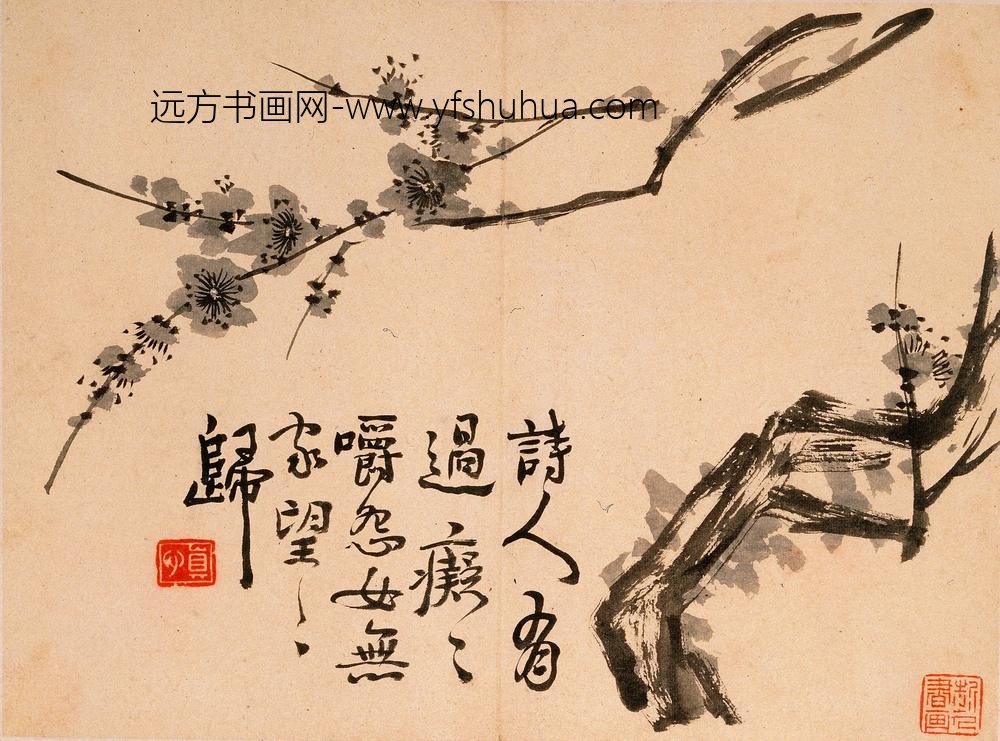 远方书画网-www.yfshuhua.com
詩人有
過癡〻
嚼怨女無
家望〻
歸